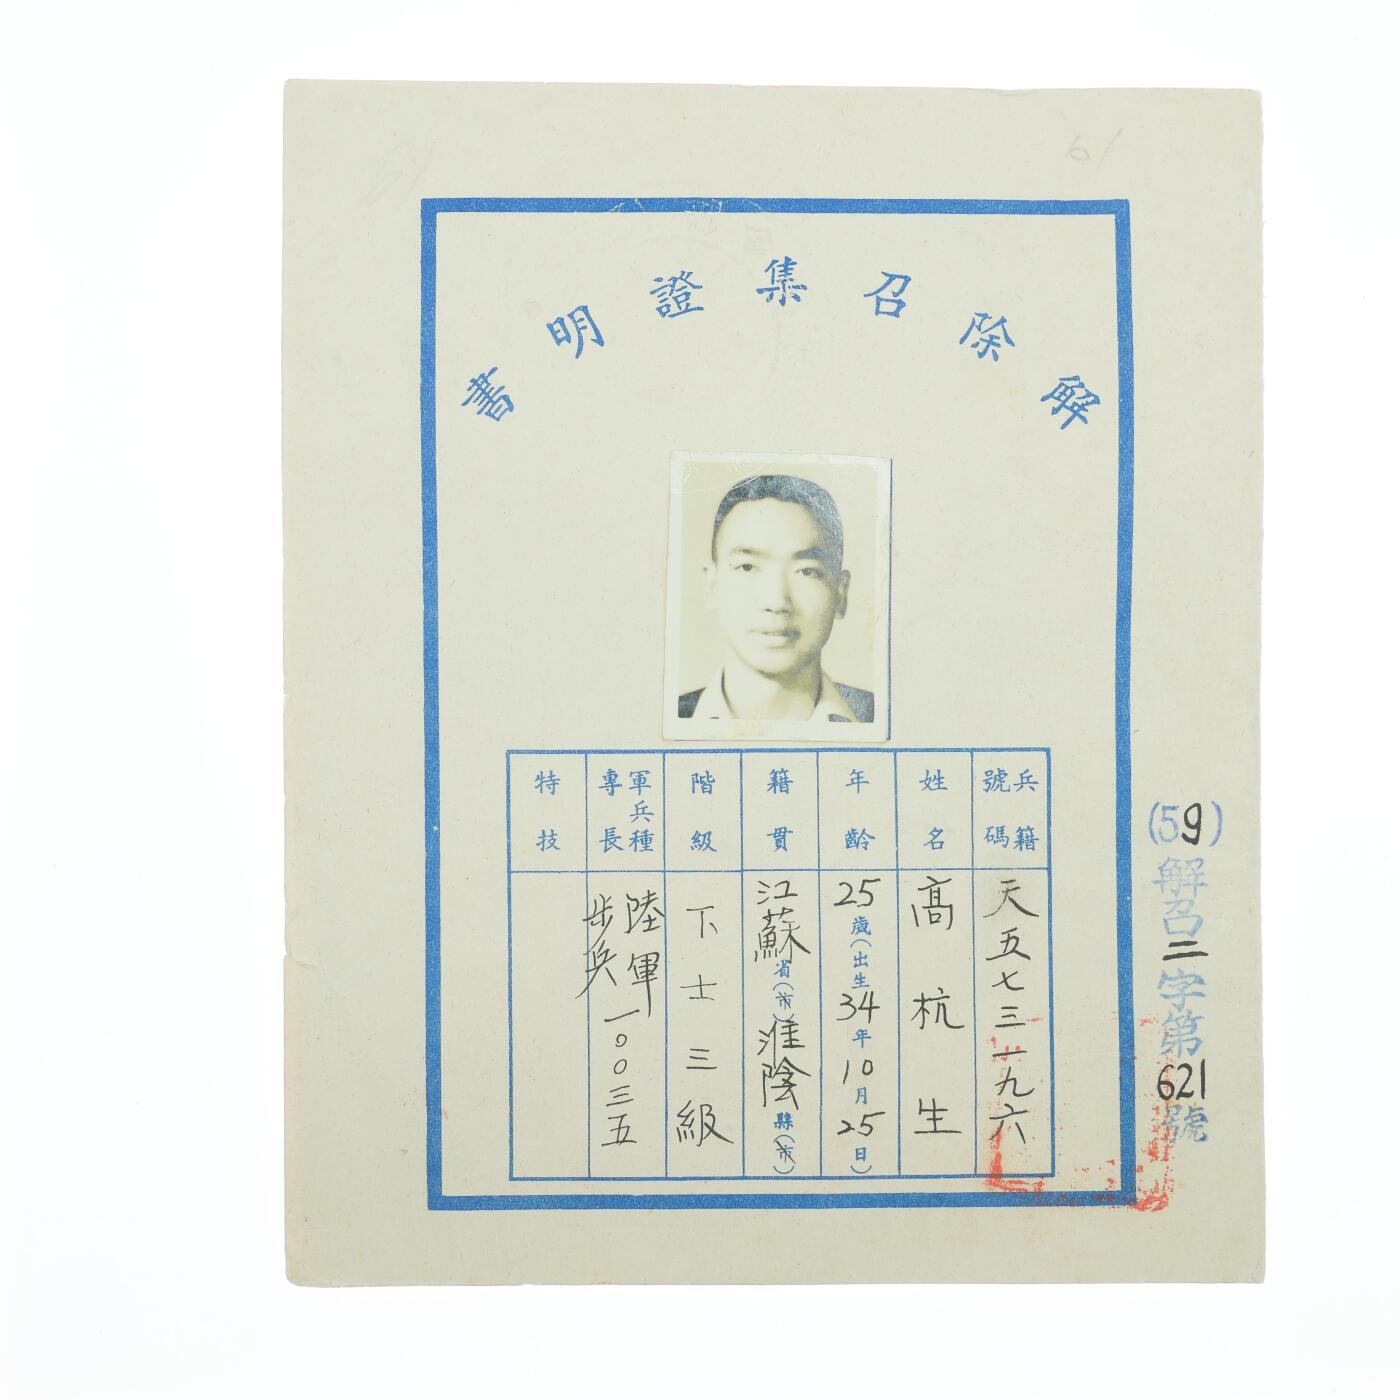 61
解除召集證明書
兵籍號碼
天五七三一九六
姓名
高杭生
年齡
25歲(出生34年10月25日)
籍貫
江蘇省(市)淮陰縣(市)
階級
下士三級
軍兵種專長
陸軍步兵一〇〇三五
特技
(59)解召二字第621號